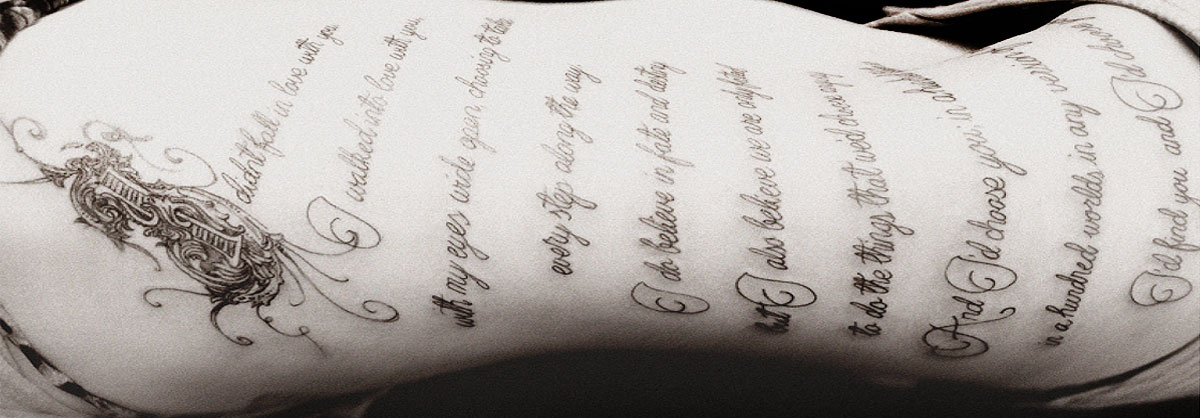 I didn't fall in love with you.
I walked into love with you,
with my eyes wide open, choosing to take
every step along the way.
I do believe in fate and destiny
but I also believe we are only fated
to do the things that we'd choose anyway
And I'd choose you; in a
in a hundred worlds in any version
I'd find you and I'd choose